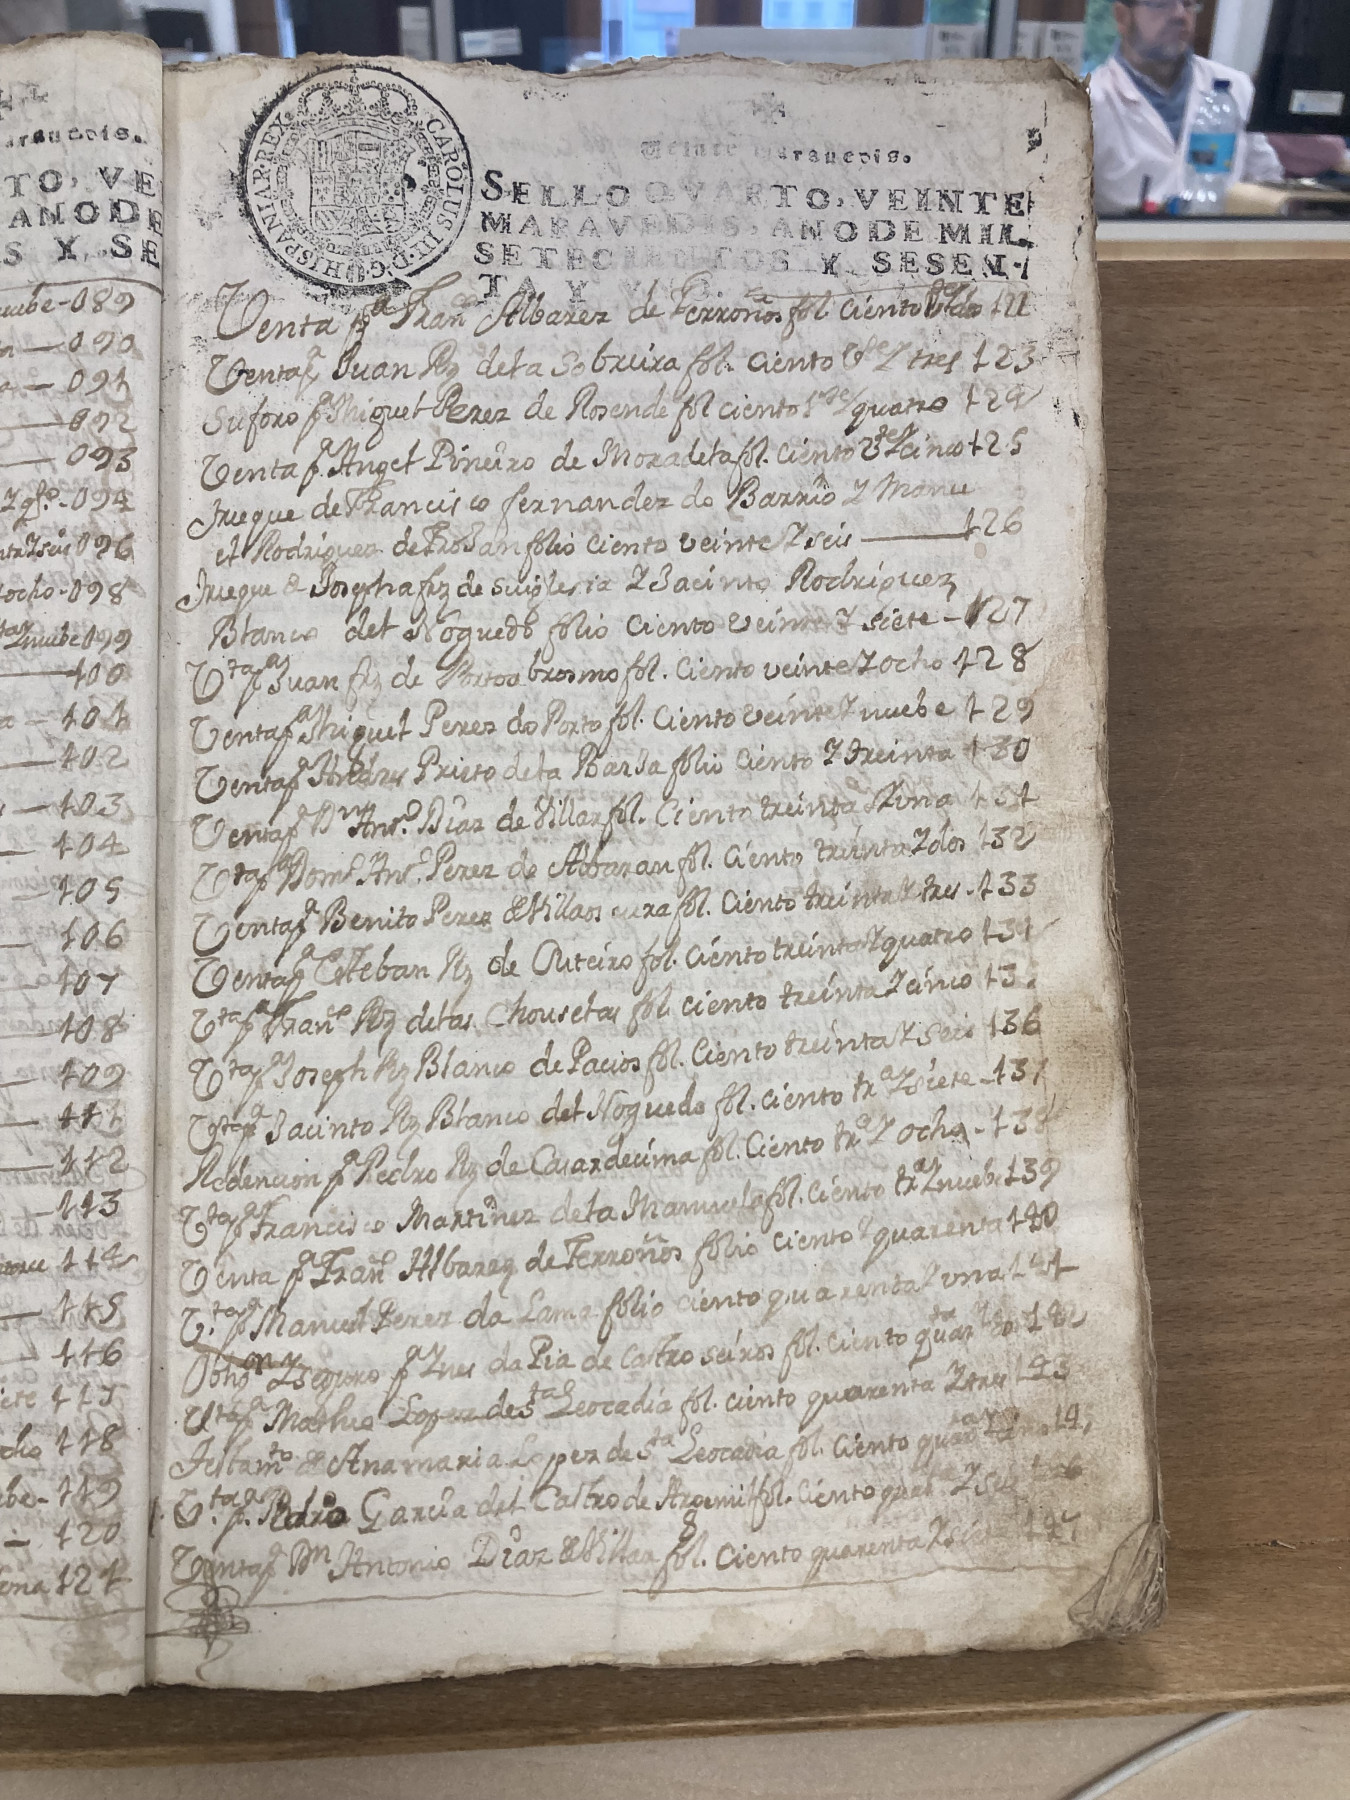 CAROLUS III D G HISPANIAR REX
Veinte marauedis.
SELLO QVARTO, VEINTE
MARAVEDIS, AÑO DE MIL
SETECIENTOS Y SESEN-
TA Y
Venta pa Franco Albarez de Ferroños fol ciento 122
Venta pa Juan Rz de la Sobreira fol. ciento Vte y tres 123
Suforo pa Miguel Perez de Rosende fol ciento y quatro 124
Venta pa Angel Pineiro de Moradela fol. ciento Vte y cinco 125
Trueque de Francisco fernandez do Barrio y Manu
el Rodriguez de Frojan folio ciento veinte y seis 126
Trueque de Josepha frz de suiglesia y Jacinto Rodriguez
Blanco del Noguedo folio ciento veinte y siete - 127
Vta pa Juan frz de Portoabrosmo fol. ciento veinte y ocho 128
Venta pa Miguel Perez do Porto fol. ciento veinte y nuebe 129
Venta pa Andres Prieto de la Barja folio ciento y treinta 130
Venta pa Dn Anto Diaz de Villar fol. Ciento treinta y una 131
Vta pa Domo Anto Perez de Albaran fol. ciento treinta y dos 132
Venta pa Benito Perez de Villaoscura fol. ciento treinta y tres - 133
Venta pa Esteban Rz de Outeiro fol. ciento treinta y quatro 134
Vta pa Franco Rz de las Chouselas fol. ciento treinta y cinco 13
Vta pa Joseph Rz Blanco de Pacios fol. Ciento treinta y seis 136
Vta pa Jacinto Rz Blanco del Noguedo fol. ciento tra y siete - 137
Redencion pa Pedro Rz de Casardecima fol. Ciento tra y ocho - 138
Vta pa Francisco Martinez de la Manuela fol. ciento tra y nuebe 139
Venta pa Franco Albarez de Ferroños folio ciento y quarenta 140
Vta pa Manuel Perez da Lama folio ciento quarenta y una 141
Obligon y Seguro pa Ynes da Pia de Castroseiros fol. ciento quarta y dos 142
Vta pa Matheo Lopez de Sta Leocadia fol. ciento quarenta y tres 143
Testamto de Anamaria Lopez de Sta Leocadia fol. ciento quarta 14
Vta pa Pedro Garcia del Castro de Argemil fol. ciento quarta y seis
Venta pa Dn Antonio Diaz de Villar fol. ciento quarenta y siete 147
marauedis.
TO, VE
AÑO DE
S Y, SE
nuebe - 089
090
091
092
093
094
096
ocho - 098
y nuebe 099
100
101
102
103
104
105
106
107
108
109
111
112
113
114
115
116
117
118
119
120
una 121